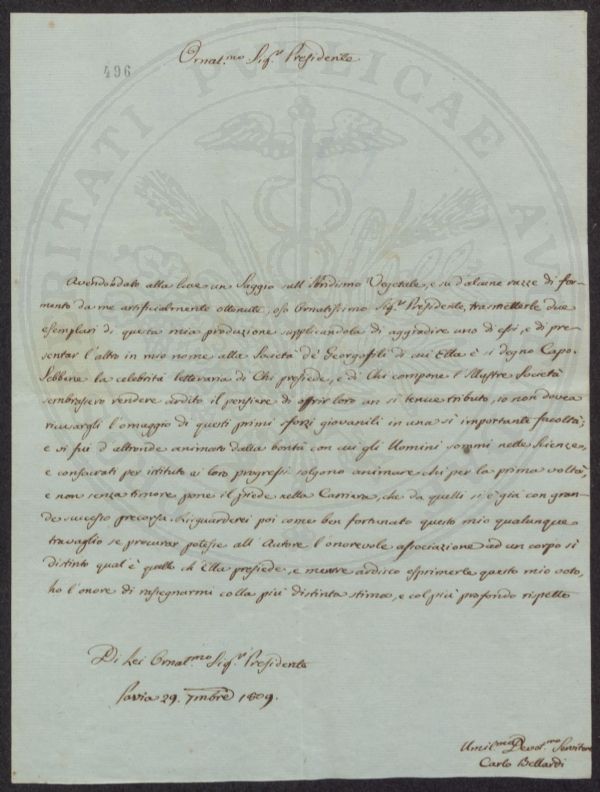 496
Ornat.mo Sig.r Presidente
Avendo dato alla luce un Saggio sull'Ibridismo Vegetale, e su d'alcune razze di for-
mento da me artificialmente ottenute, oso Ornatissimo Sig.r Presidente, trasmetterle due
esemplari di questa mia produzione supplicandola di aggradire uno d'essi, e di pre-
sentar l'altro in mio nome alla Società de' Georgofili di cui Ella è sì degno Capo.
Sebbene la celebrità letteraria di Chi presiede, e di Chi compone l'Illustre Società
sembrassero rendere ardito il pensiere di offrir loro un sì tenue tributo, io non dovea
ricusargli l'omaggio di questi primi sforzi giovanili in una sì importante facoltà;
e sì fui d'altronde animato dalla bontà con cui gli Uomini sommi nelle Scienze,
e consacrati per istituto ai loro progressi solgono animare chi per la prima volta,
e non senza timore pone il piede nella Carriera, che da quelli si è già con gran-
de successo precorsa. Risguarderei poi come ben fortunato questo mio qualunque
travaglio se procurar potesse all'Autore l'onorevole associazione ad un corpo sì
distinto qual'è quello ch'Ella presiede, e mentre ardisco esprimerle questo mio voto,
ho l'onore di rassegnarmi colla più distinta stima, e col più profondo rispetto
Di Lei Ornat.mo Sig.r Presidente
Pavia 29. 7mbre 1809.
Umil.mo Devot.mo Servitore
Carlo Bellardi
PUBLICAE